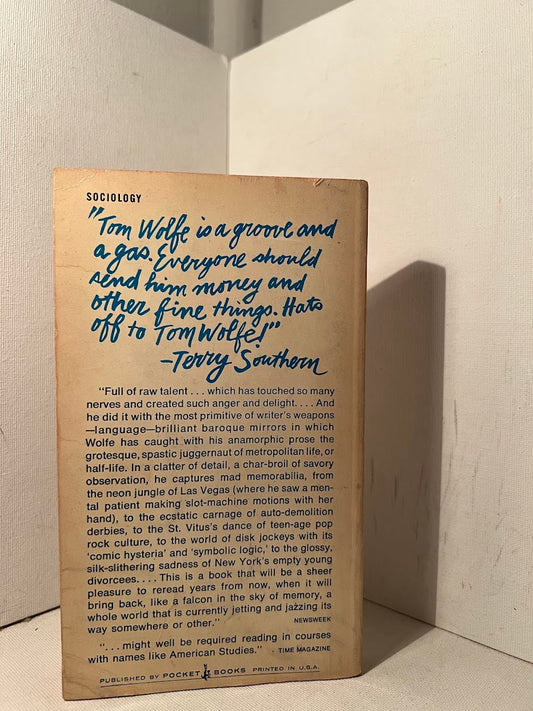 SOCIOLOGY
"Tom Wolfe is a groove and
a gas. Everyone should
send him money and
other fine things. Hats
off to Tom Wolfe!"
-Terry Southern
"Full of raw talent . . . which has touched so many
nerves and created such anger and delight. . . . And
he did it with the most primitive of writer's weapons
—language—brilliant baroque mirrors in which
Wolfe has caught with his anamorphic prose the
grotesque, spastic juggernaut of metropolitan life, or
half-life. In a clatter of detail, a char-broil of savory
observation, he captures mad memorabilia, from
the neon jungle of Las Vegas (where he saw a men-
tal patient making slot-machine motions with her
hand), to the ecstatic carnage of auto-demolition
derbies, to the St. Vitus's dance of teen-age pop
rock culture, to the world of disk jockeys with its
'comic hysteria' and 'symbolic logic,' to the glossy,
silk-slithering sadness of New York's empty young
divorcees. . . . This is a book that will be a sheer
pleasure to reread years from now, when it will
bring back, like a falcon in the sky of memory, a
whole world that is currently jetting and jazzing its
way somewhere or other." NEWSWEEK
". . . might well be required reading in courses
with names like American Studies." - TIME MAGAZINE
PUBLISHED BY POCKET BOOKS PRINTED IN U.S.A.